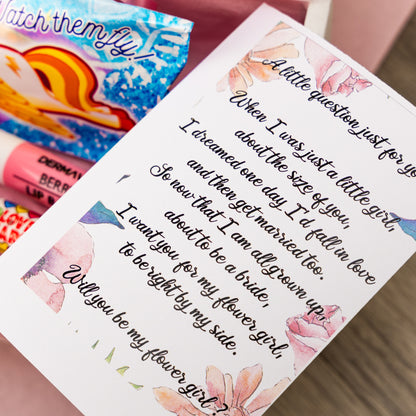 Watch them fly!
DERMA
BERR
LIP B
A little question just for yo
When I was just a little girl,
about the size of you,
I dreamed one day I'd fall in love
and then get married too.
So now that I am all grown up,
about to be a bride,
I want you for my flower girl,
to be right by my side.
Will you be my flower girl?